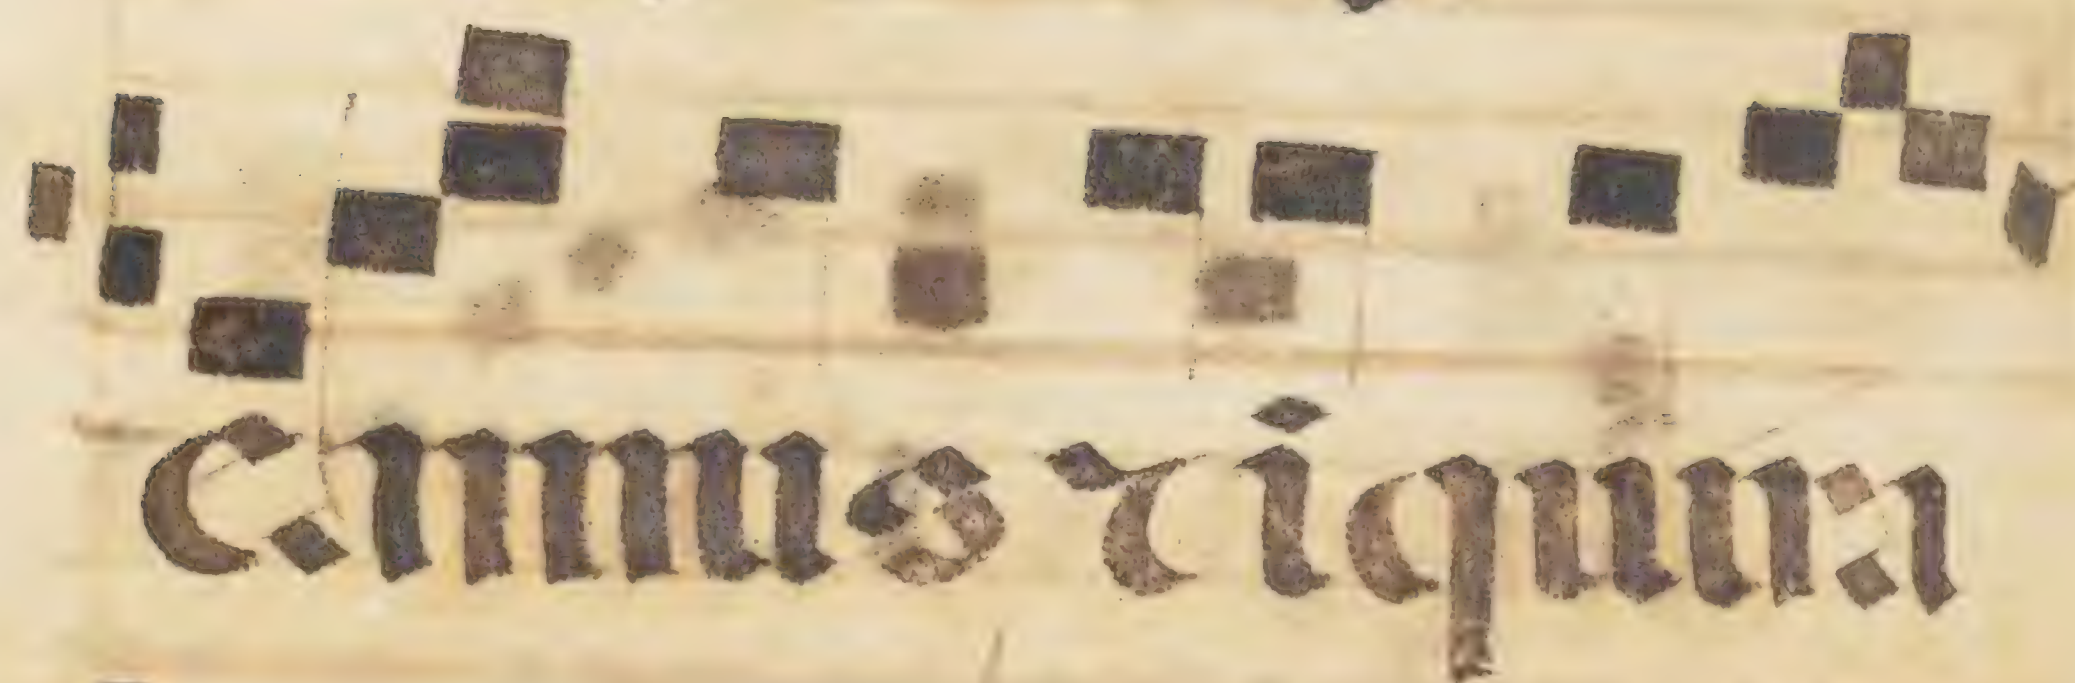 cimus ti quia